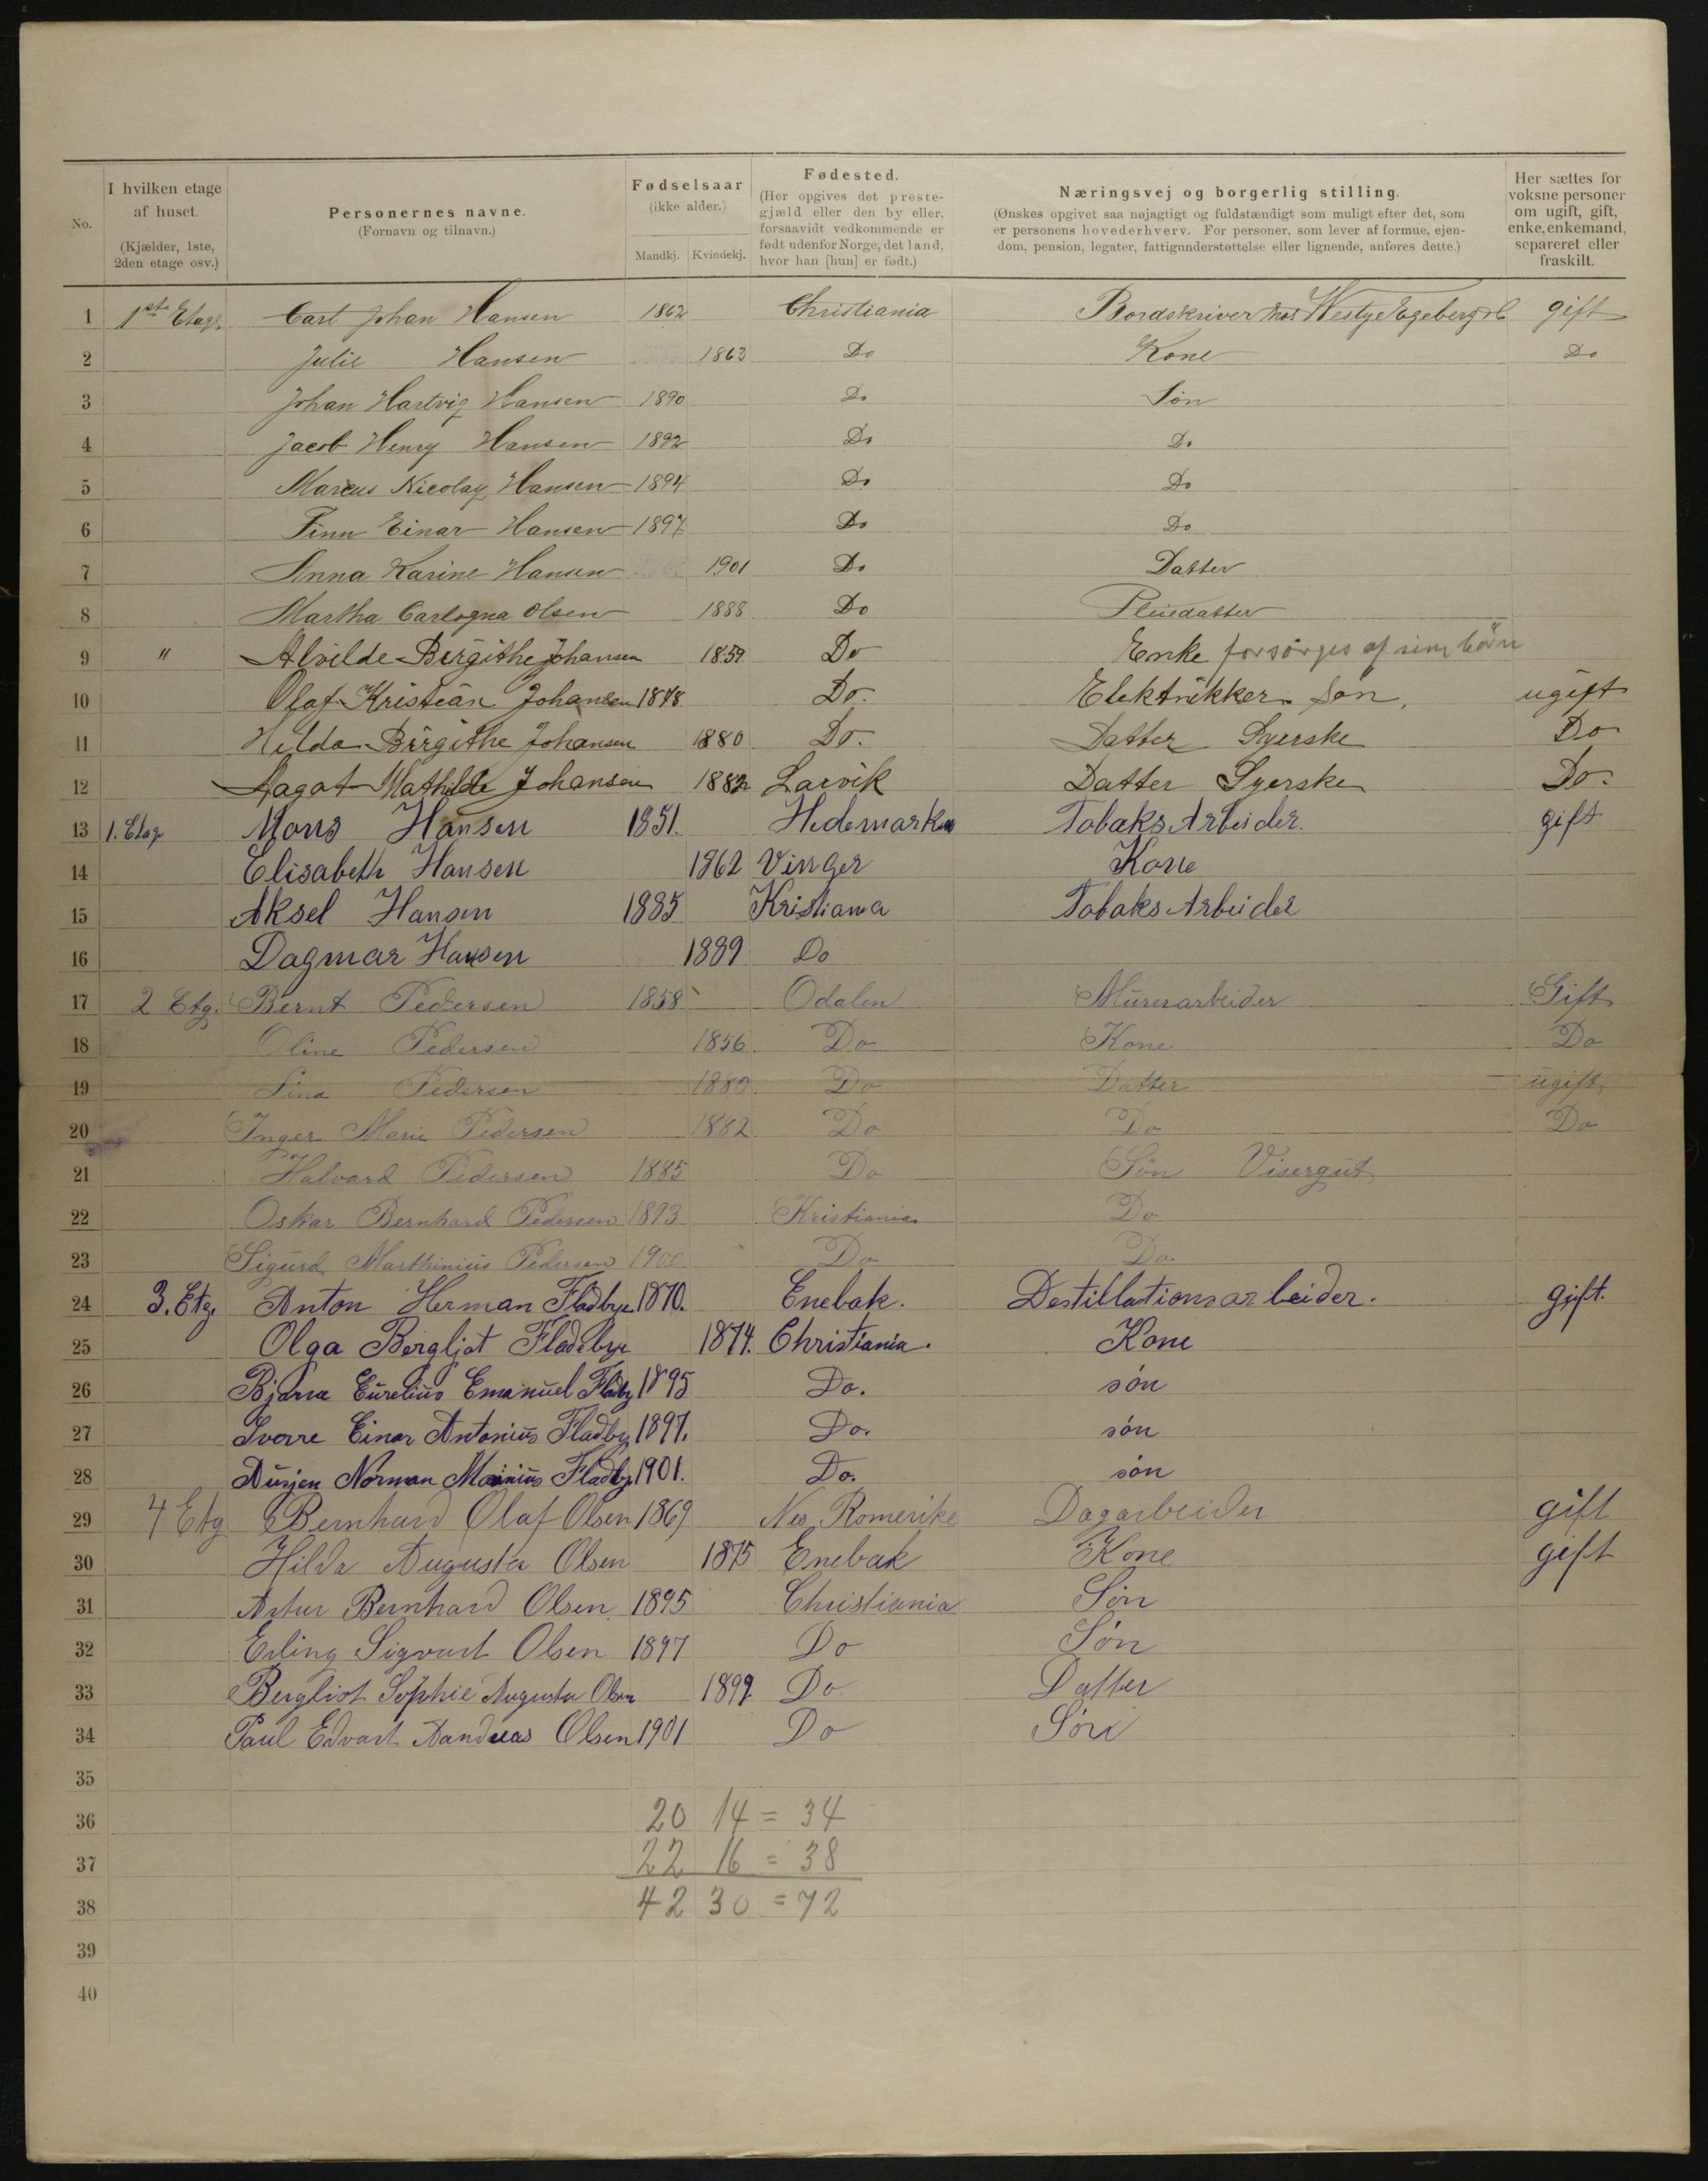 No.
I hvilken etage af huset. (Kjælder, 1ste, 2den etage osv.)
Personernes navne. (Fornavn og tilnavn.)
Fødselsaar (ikke alder.)
Mandkj. Kvindekj.
Fødested. (Her opgives det prestegjæld eller den by eller, forsaavidt vedkommende er født udenfor Norge, det land, hvor han [hun] er født.)
Næringsvej og borgerlig stilling. (Ønskes opgivet saa nøjagtigt og fuldstændigt som muligt efter det, som er personens hovederhverv. For personer, som lever af formue, ejendom, pension, legater, fattigunderstøttelse eller lignende, anføres dette.)
Her sættes for voksne personer om ugift, gift, enke, enkemand, separeret eller fraskilt.
1 1ste Etage Carl Johan Hansen 1862 Christiania Bordskriver hos Westye Egeberg & C gift
2 Julie Hansen 1863 Do Kone Do
3 Johan Hartvig Hansen 1890 Do Søn
4 Jacob Henry Hansen 1892 Do Do
5 Marcus Nicolay Hansen 1894 Do Do
6 Finn Einar Hansen 1897 Do Do
7 Anna Karine Hansen 1901 Do Datter
8 Martha Carlogna Olsen 1888 Do Pleiedatter
9 " Alvilde Birgithe Johansen 1859 Do Enke forsørges af sine børn
10 Olaf Kristian Johansen 1878 Do. Elektrikker Søn, ugift
11 Hilda Birgithe Johansen 1880 Do. Datter Syerske Do
12 Aagot Mathilde Johansen 1882 Larvik Datter Syerske Do.
13 1. Etag Mons Hansen 1851. Hedemarken Tobaks Arbeider. gift
14 Elisabeth Hansen 1862 Vinger Kone
15 Aksel Hansen 1885 Kristiania Tobaks Arbeider
16 Dagmar Hansen 1889 Do
17 2 Etg. Bernt Pedersen 1858 Odalen Murerarbeider Gift
18 Oline Pedersen 1856 Do Kone Do
19 Lina Pedersen 1880 Do Datter ugift
20 Inger Marie Pedersen 1882 Do Do Do
21 Halvard Pedersen 1885 Do Søn Visergut
22 Oskar Bernhard Pedersen 1893 Kristiania Do
23 Sigurd Marthinius Pedersen 1900 Do Do
24 3. Etg. Anton Herman Fladbye 1870. Enebak. Destillationsarbeider. gift.
25 Olga Bergljot Fladebye 1874. Christiania. Kone
26 Bjarne Eurelius Emanuel Fladby 1895 Do. søn
27 Sverre Einar Antonius Fladby 1897. Do. søn
28 Norman Fladby 1901. Do. søn
29 4 Etg Bernhard Olaf Olsen 1869 Nes Romerike Dagarbeider gift
30 Hilda Augusta Olsen 1875 Enebak Kone gift
31 Artur Bernhard Olsen 1895 Christiania Søn
32 Erling Sigvart Olsen 1897 Do Søn
33 Bergliot Sophie Augusta Olsen 1899 Do Datter
34 Paul Edvart Aandreas Olsen 1901 Do Søn
35
36 20 14 = 34
37 22 16 = 38
38 42 30 = 72
39
40